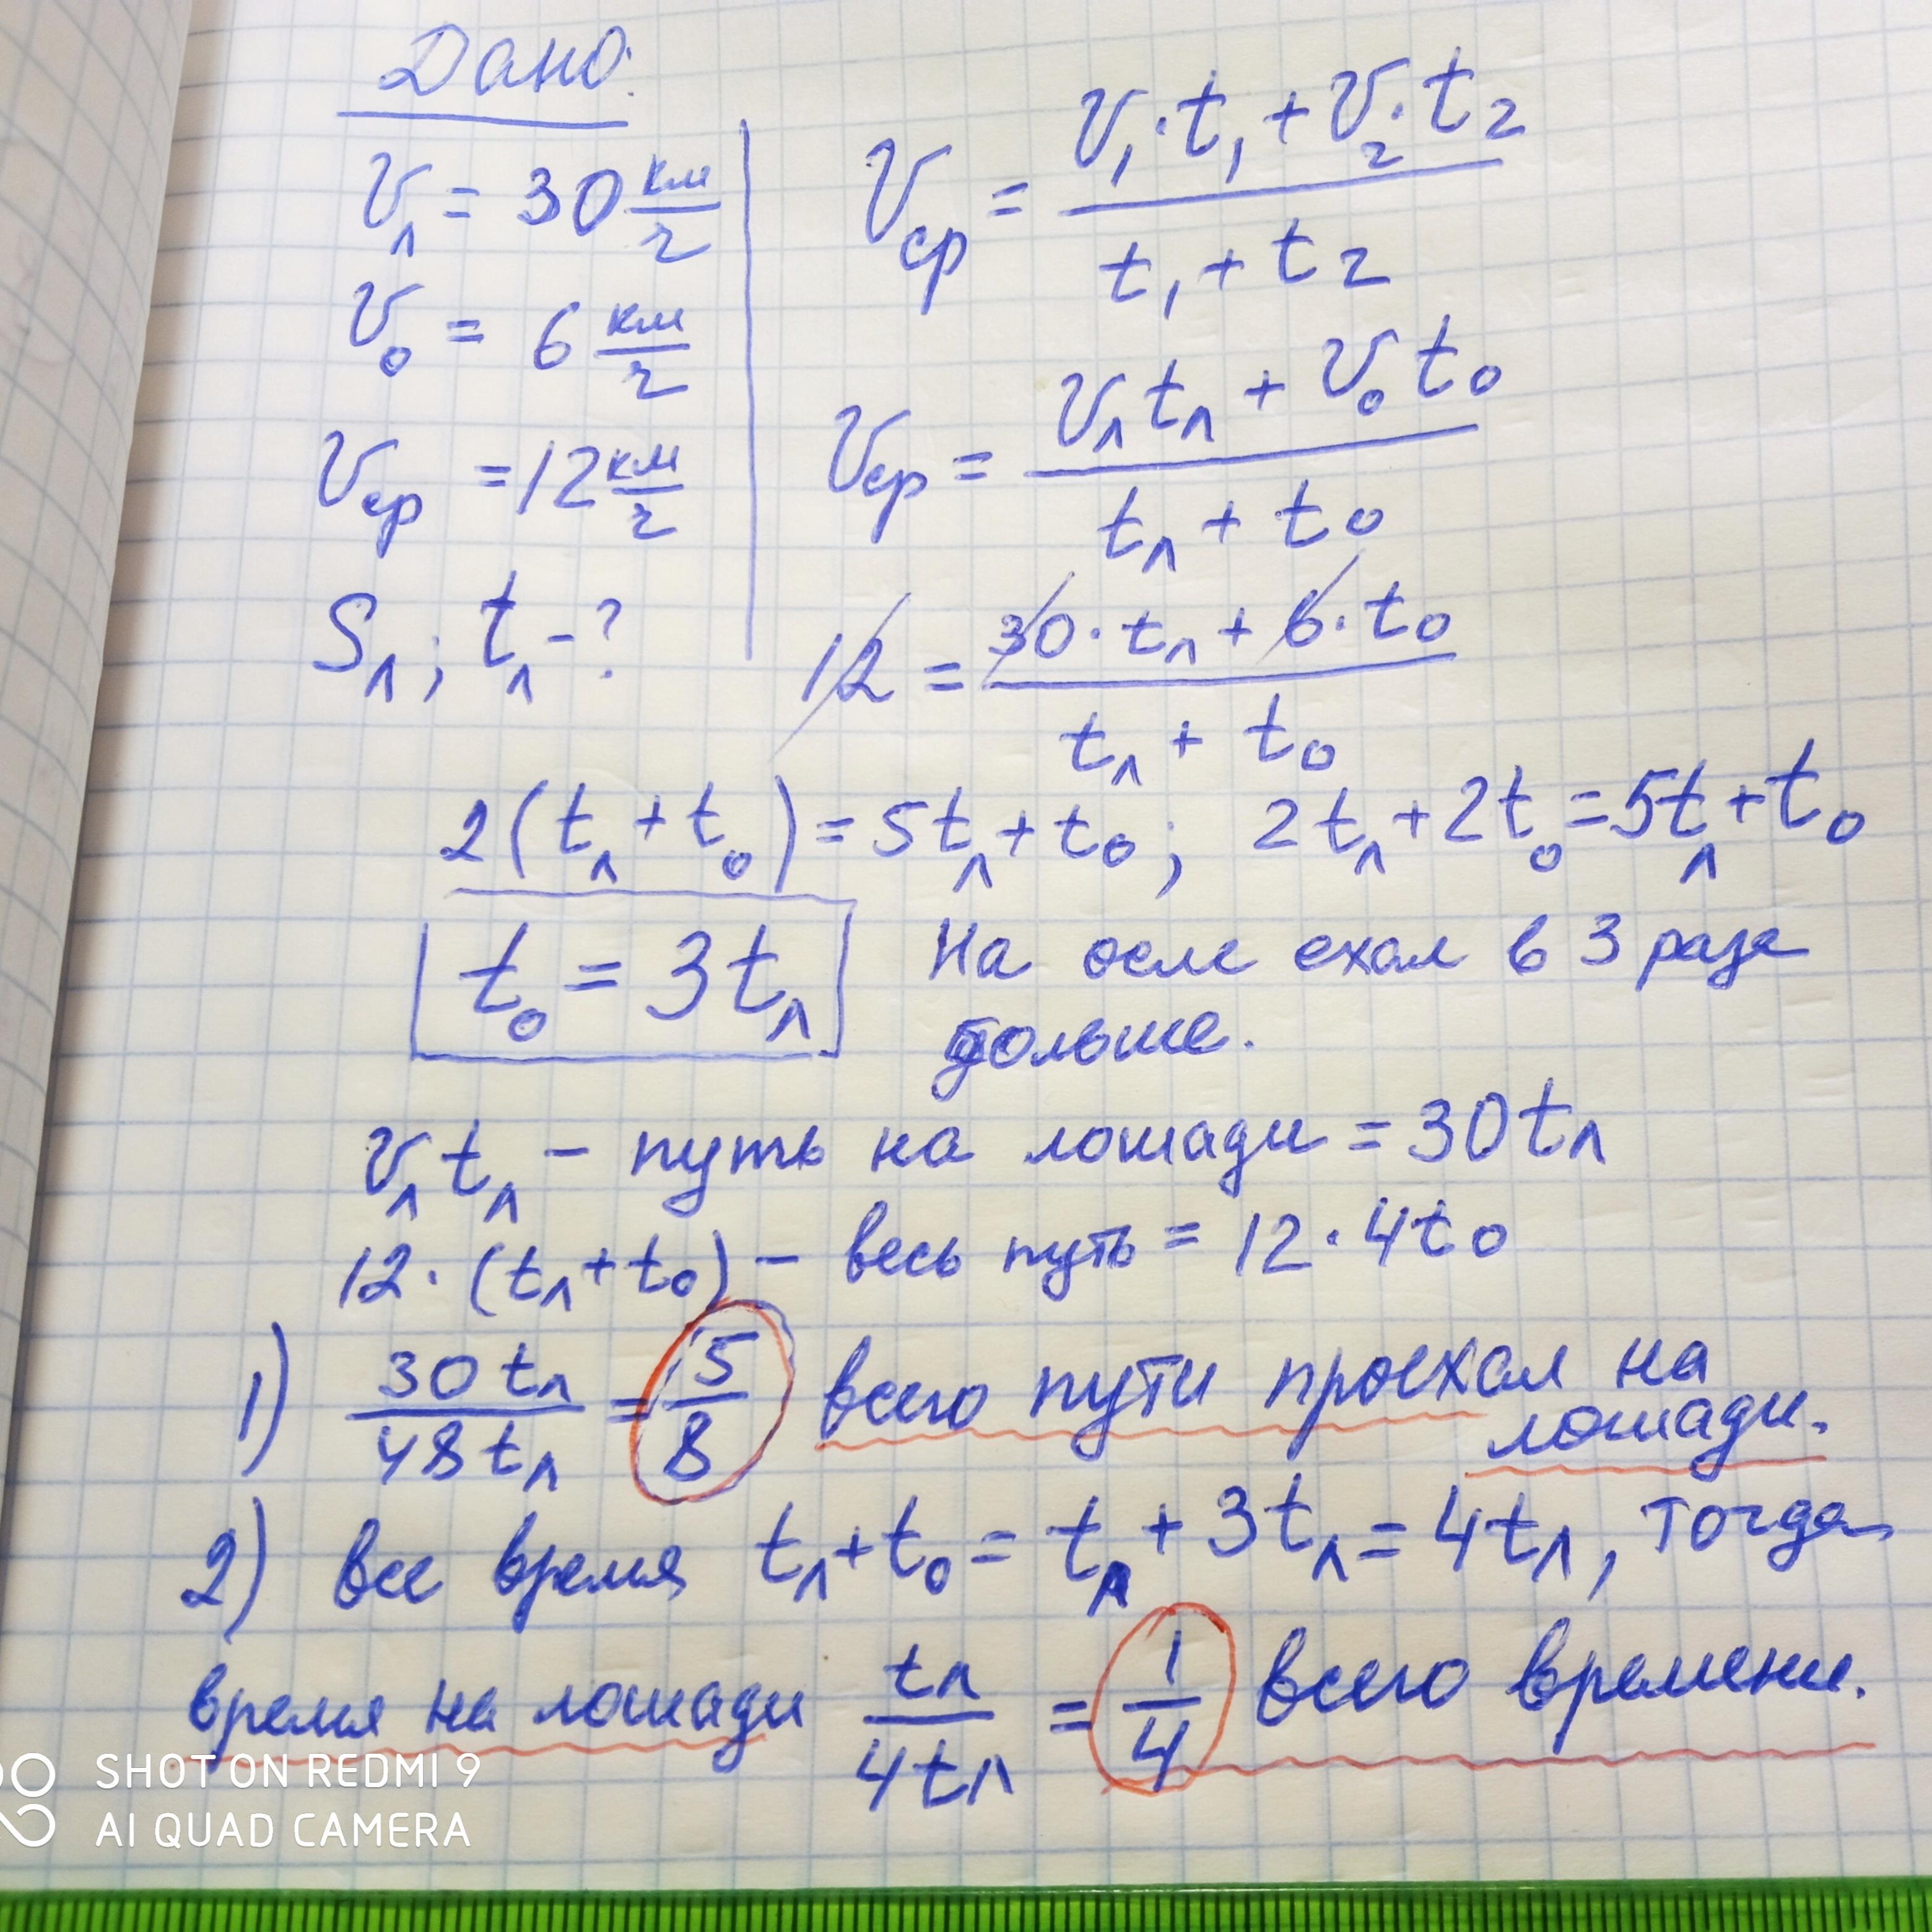 Дано:
v_л = 30 км/г
v_о = 6 км/г
v_ср = 12 км/г
S_л; t_л - ?
v_ср = (v₁·t₁ + v₂·t₂)/(t₁ + t₂)
v_ср = (v_л t_л + v_о t_о)/(t_л + t_о)
12 = (30·t_л + 6·t_о)/(t_л + t_о)
2(t_л + t_о) = 5t_л + t_о; 2t_л + 2t_о = 5t_л + t_о
t_о = 3t_л
На осле ехал в 3 раза
дольше.
v_л t_л – путь на лошади = 30t_л
12·(t_л + t_о) – весь путь = 12·4t_о
1) 30t_л/48t_л = 5/8 всего пути проехал на
лошади.
2) все время t_л + t_о = t_л + 3t_л = 4t_л, тогда
время на лошади t_л/4t_л = 1/4 всего времени.
SHOT ON REDMI 9
AI QUAD CAMERA